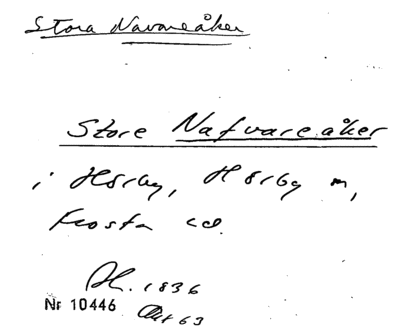 Stora Navareåker
Store Nafvareåker
i Hörby, Hörby m,
Frosta
1836
Nr 10446
63